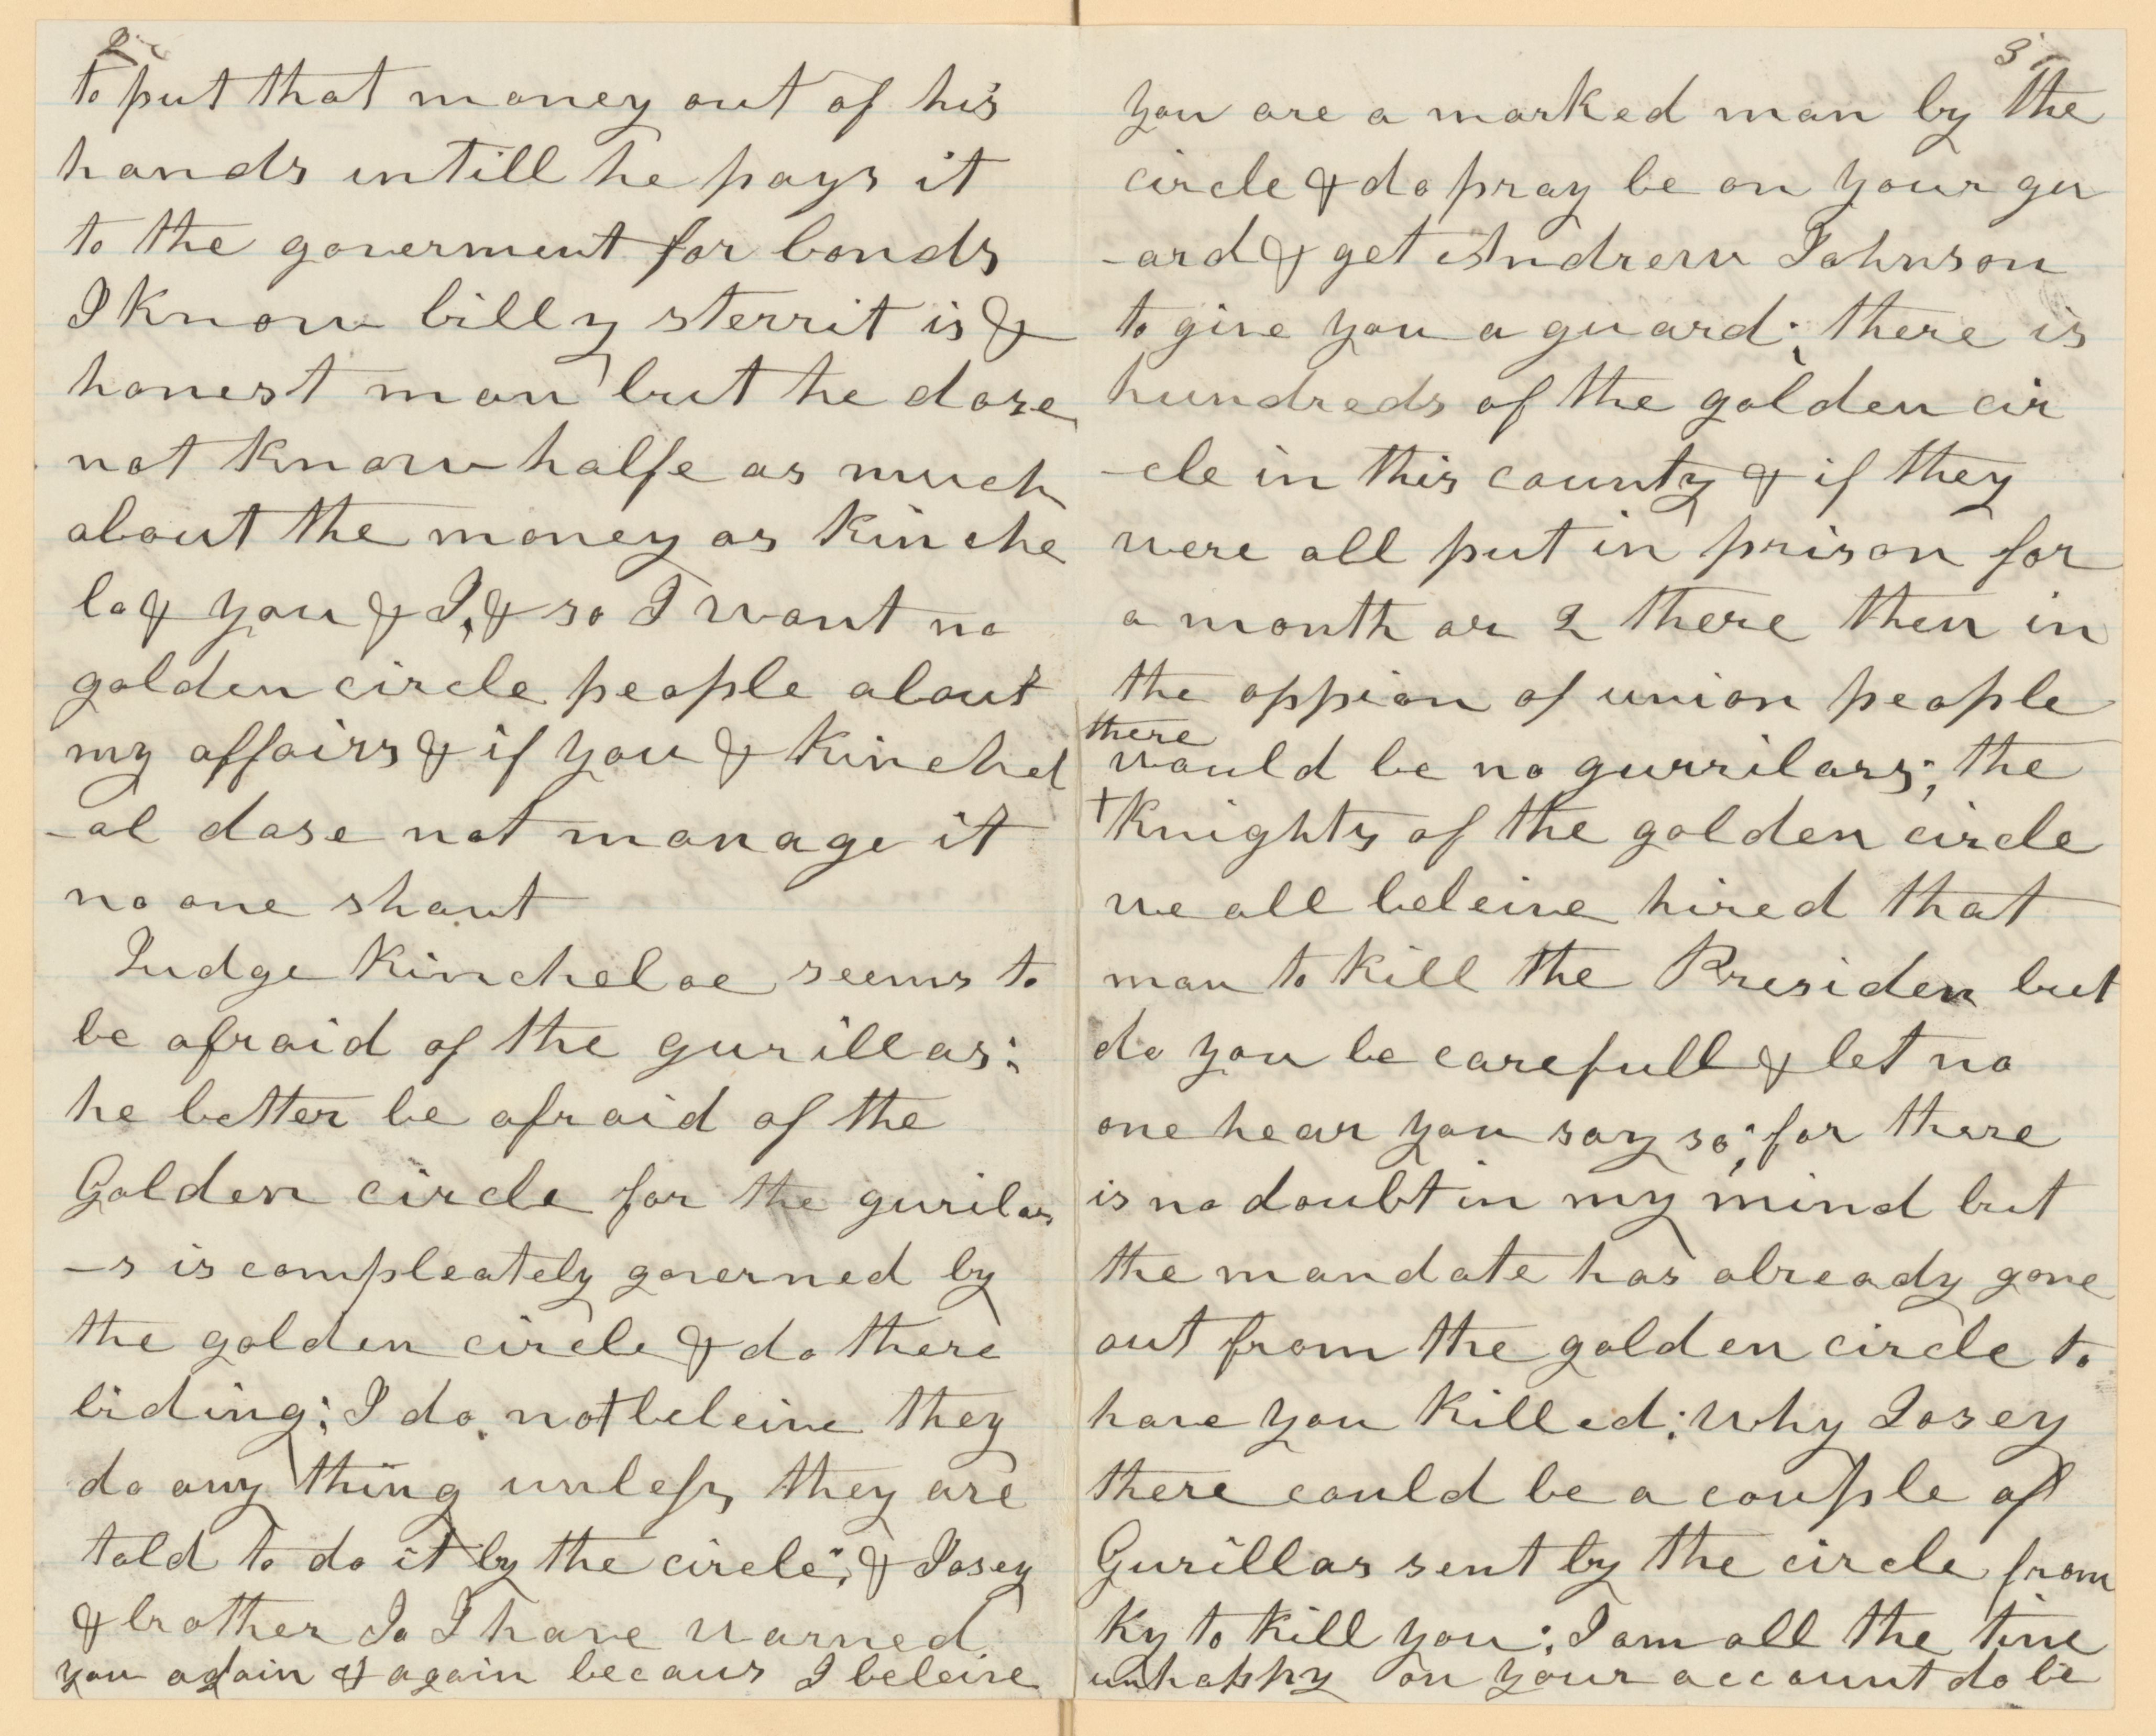 2
to put that money out of his
hands untill he pays it
to the goverment for bonds
I know billy sterrit is &
honest man but he dose
not know halfe as much
about the money as Kinche
lo & you & I, & so I want no
golden circle people about
my affairs & if you & Kinchel
-ol dose not manage it
no one shant
Judge Kincheloe seems to
be afraid of the gurillas;
he better be afraid of the
Golden circle for the gurilas
-s is compleately governed by
the golden circle & do there
biding; I do not beleive they
do any thing unless they are
told to do it by the circle; & Josey
& brother Jo I have warned
you again & again becaus I beleive
3
you are a marked man by the
circle & do pray be on your gu
-ard & get Andrew Johnson
to give you a guard; there is
hundreds of the golden cir
-cle in this county & if they
were all put in prison for
a month or 2 there then in
the oppion of union people
there
would be no gurrilass; the
+Knights of the golden circle
we all beleive hired that
man to kill the Presiden but
do you be carefull & let no
one hear you say so; for there
is no doubt in my mind but
the mandate has already gone
out from the golden circle to
have you killed; why Josey
there could be a couple of
Gurillas sent by the circle from
Ky to kill you; I am all the time
unhappy on your account do be